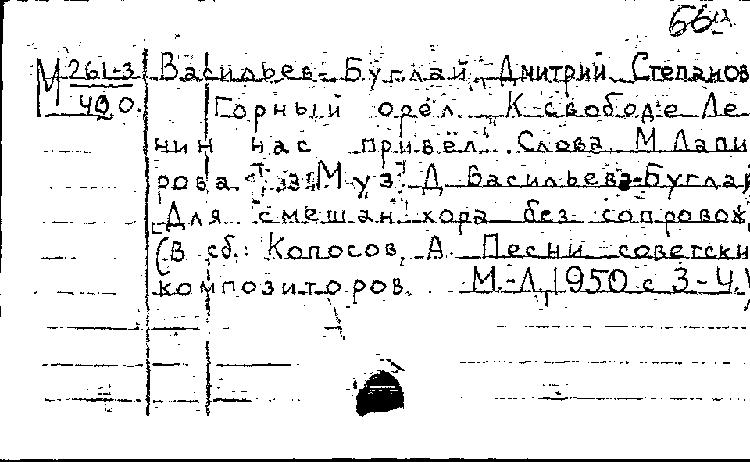 66ч
М 261-3 Васильев-Буглай, Дмитрий Степанов
490. Горный орёл. К свободе Ле-
нин нас привёл. Слова М. Лапи-
рова. Муз. Д. Васильева-Буглая
Для смешан. хора без сопровож.
(В сб.: Колосов, А. Песни советски
композиторов. М.-Л, 1950 с 3-4.)